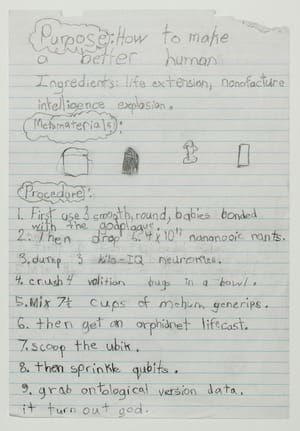 Purpose: How to make
a better human
Ingredients: life extension, nanofacture
intelligence explosion.
Metamaterial(s):
Procedure:
1. First use 3 smooth, round, babies bonded
with the godplague.
2. Then drop 6.4x10¹¹ nananooic nants.
3. dump 3 kilo-IQ neuromes.
4. crush 4 volition bugs in a bowl.
5. Mix 7t cups of mehum generips.
6. then get an orphidnet lifecast.
7. scoop the ubik.
8. then sprinkle qubits.
9. grab ontological version data.
it turn out god.